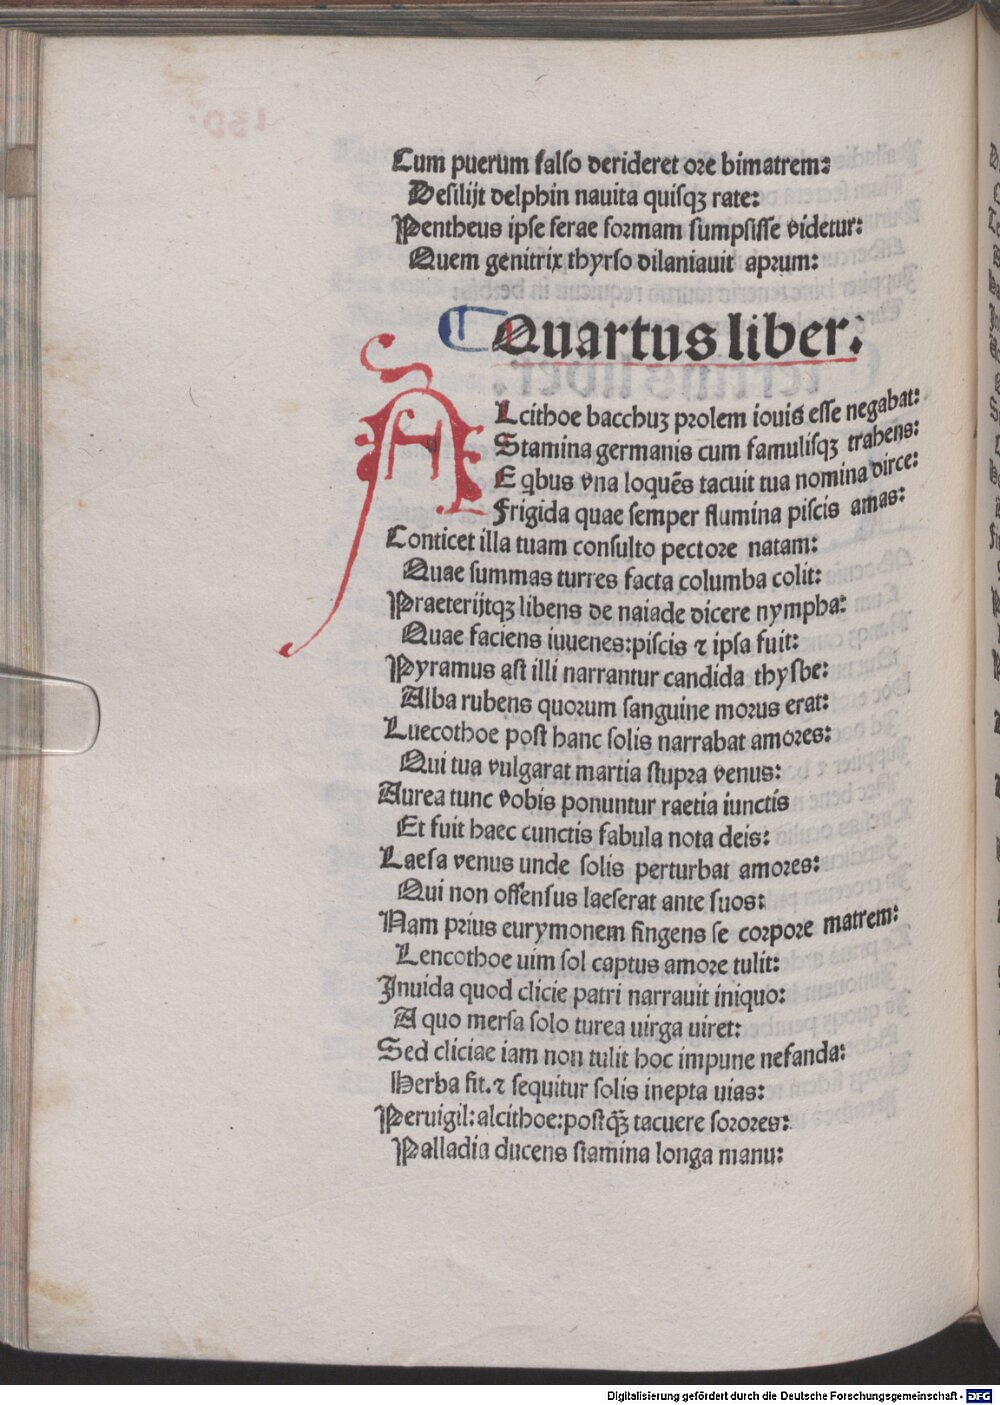 Cum puerum falso derideret ore bimatrem:
Desilijt delphin nauita quisqꝫ rate:
Pentheus ipse ferae formam sumpsisse videtur:
Quem genitrix thyrso dilaniauit aprum:
Quartus liber:
ALcithoe bacchuꝫ prolem iouis esse negabat:
Stamina germanis cum famulisqꝫ trahens:
E qbus vna loquēs tacuit tua nomina dirce:
Frigida quae semper flumina piscis amas:
Conticet illa tuam consulto pectore natam:
Quae summas turres facta columba colit:
Praeterijtqꝫ libens de naiade dicere nympha:
Quae faciens iuuenes:piscis ⁊ ipsa fuit:
Pyramus ast illi narrantur candida thysbe:
Alba rubens quorum sanguine morus erat:
Luecothoe post hanc solis narrabat amores:
Qui tua vulgarat martia stupra venus:
Aurea tunc vobis ponuntur raetia iunctis
Et fuit haec cunctis fabula nota deis:
Laesa venus unde solis perturbat amores:
Qui non offensus laeserat ante suos:
Nam prius eurymonem fingens se corpore matrem:
Lencothoe uim sol captus amore tulit:
Inuida quod clicie patri narrauit iniquo:
A quo mersa solo turea uirga uiret:
Sed cliciae iam non tulit hoc impune nefanda:
Herba fit.⁊ sequitur solis inepta uias:
Peruigil:alcithoe:postq̄ꝫ tacuere sorores:
Palladia ducens stamina longa manu:
Digitalisierung gefördert durch die Deutsche Forschungsgemeinschaft - DFG